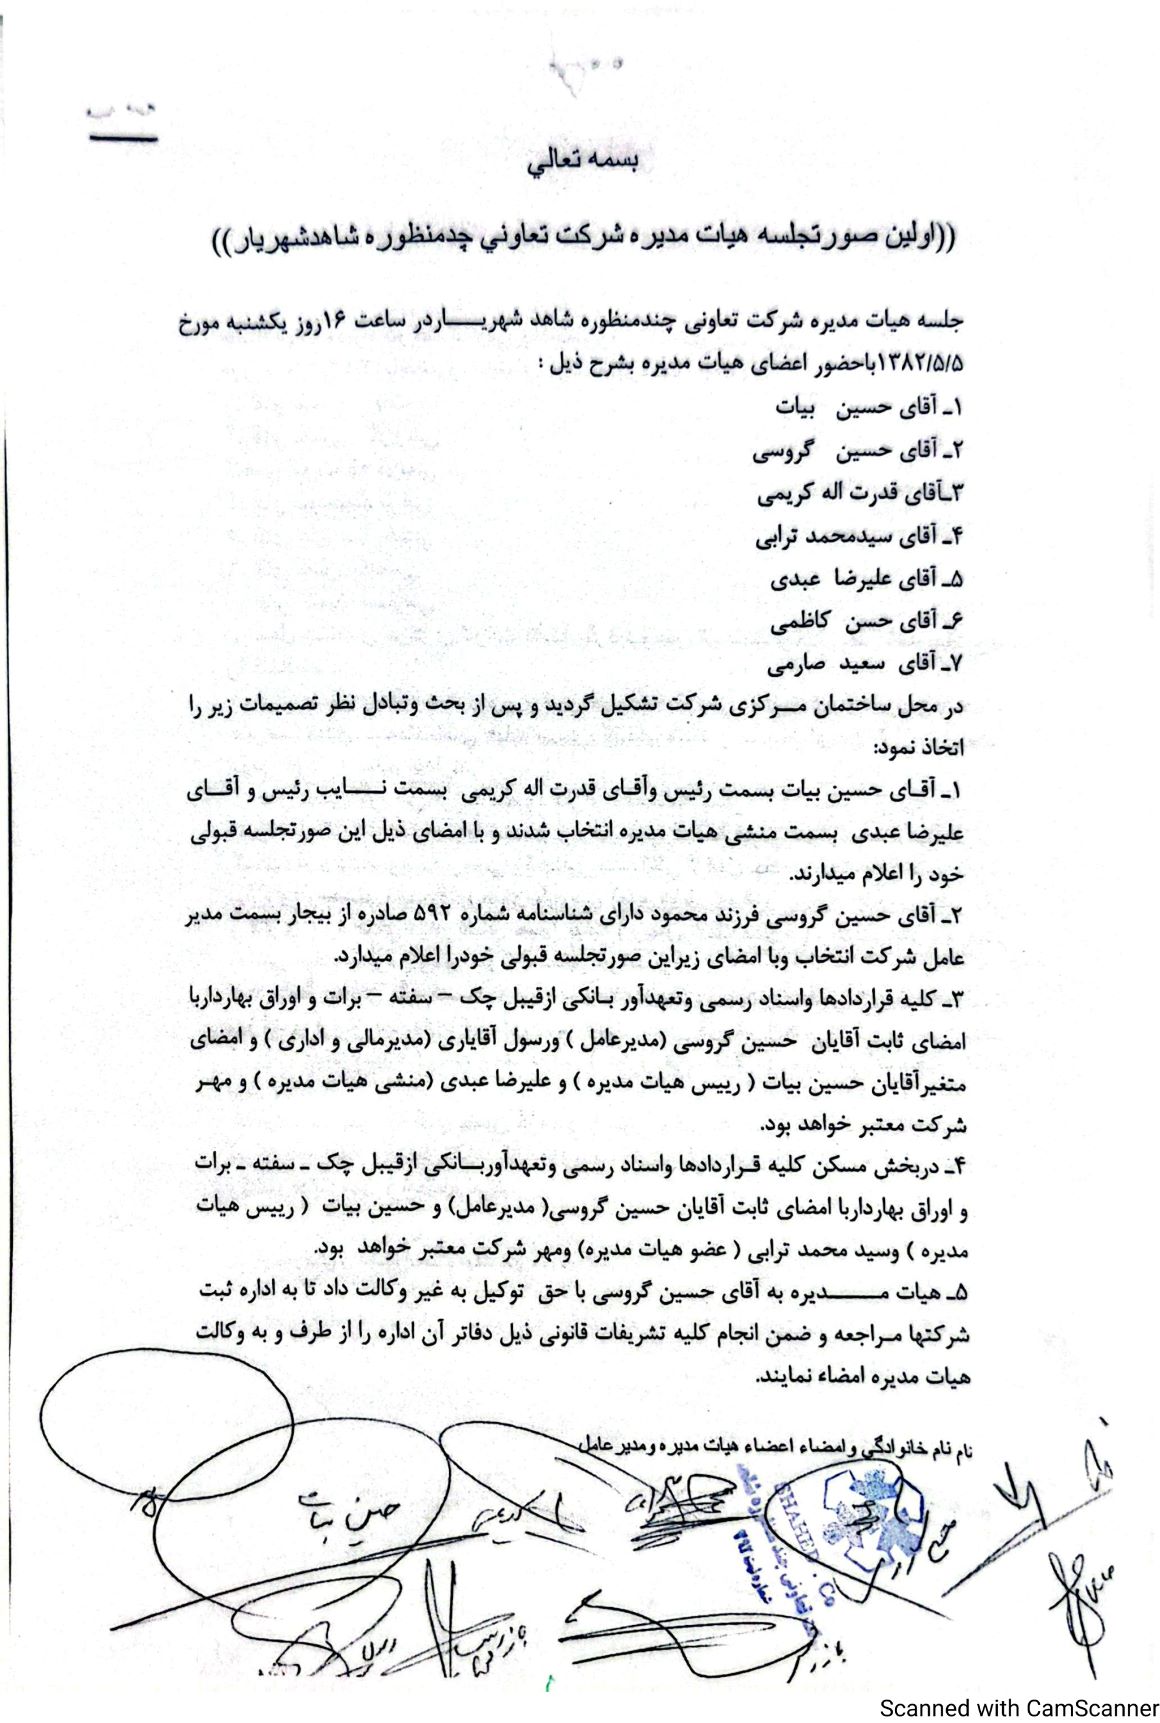 بسمه تعالي
((اولين صورتجلسه هيات مديره شركت تعاوني چدمنظوره شاهدشهريار))
جلسه هیات مدیره شرکت تعاونی چندمنظوره شاهد شهریـــــاردر ساعت ۱۶روز یکشنبه مورخ
۱۳۸۲/۵/۵باحضور اعضای هیات مدیره بشرح ذیل :
۱ـ آقای حسین بیات
۲ـ آقای حسین گروسی
۳ـآقای قدرت اله کریمی
۴ـ آقای سیدمحمد ترابی
۵ـ آقای علیرضا عبدی
۶ـ آقای حسن کاظمی
۷ـ آقای سعید صارمی
در محل ساختمان مـــرکزی شرکت تشکیل گردید و پس از بحث وتبادل نظر تصمیمات زیر را
اتخاذ نمود:
۱ـ آقـای حسین بیات بسمت رئیس وآقـای قدرت اله کریمی بسمت نـــــایب رئیس و آقـــای
علیرضا عبدی بسمت منشی هیات مدیره انتخاب شدند و با امضای ذیل این صورتجلسه قبولی
خود را اعلام میدارند.
۲ـ آقای حسین گروسی فرزند محمود دارای شناسنامه شماره ۵۹۲ صادره از بیجار بسمت مدیر
عامل شرکت انتخاب وبا امضای زیراین صورتجلسه قبولی خودرا اعلام میدارد.
۳ـ کلیه قراردادها واسناد رسمی وتعهدآور بـانکی ازقیبل چک – سفته – برات و اوراق بهارداربا
امضای ثابت آقایان حسین گروسی (مدیرعامل ) ورسول آقایاری (مدیرمالی و اداری ) و امضای
متغیرآقایان حسین بیات ( رییس هیات مدیره ) و علیرضا عبدی (منشی هیات مدیره ) و مهـر
شرکت معتبر خواهد بود.
۴ـ دربخش مسکن کلیه قـراردادها واسناد رسمی وتعهدآوربــانکی ازقیبل چک ـ سفته ـ برات
و اوراق بهارداربا امضای ثابت آقایان حسین گروسی( مدیرعامل) و حسین بیات ( رییس هیات
مدیره ) وسید محمد ترابی ( عضو هیات مدیره) ومهر شرکت معتبر خواهد بود.
۵ـ هیات مـــــــدیره به آقای حسین گروسی با حق توکیل به غیر وکالت داد تا به اداره ثبت
شرکتها مـراجعه و ضمن انجام کلیه تشریفات قانونی ذیل دفاتر آن اداره را از طرف و به وکالت
هیات مدیره امضاء نمایند.
نام نام خانوادگي وامضاء اعضاء هيات مديره ومديرعامل
SHAHED . Co
حسین بیات
Scanned with CamScanner